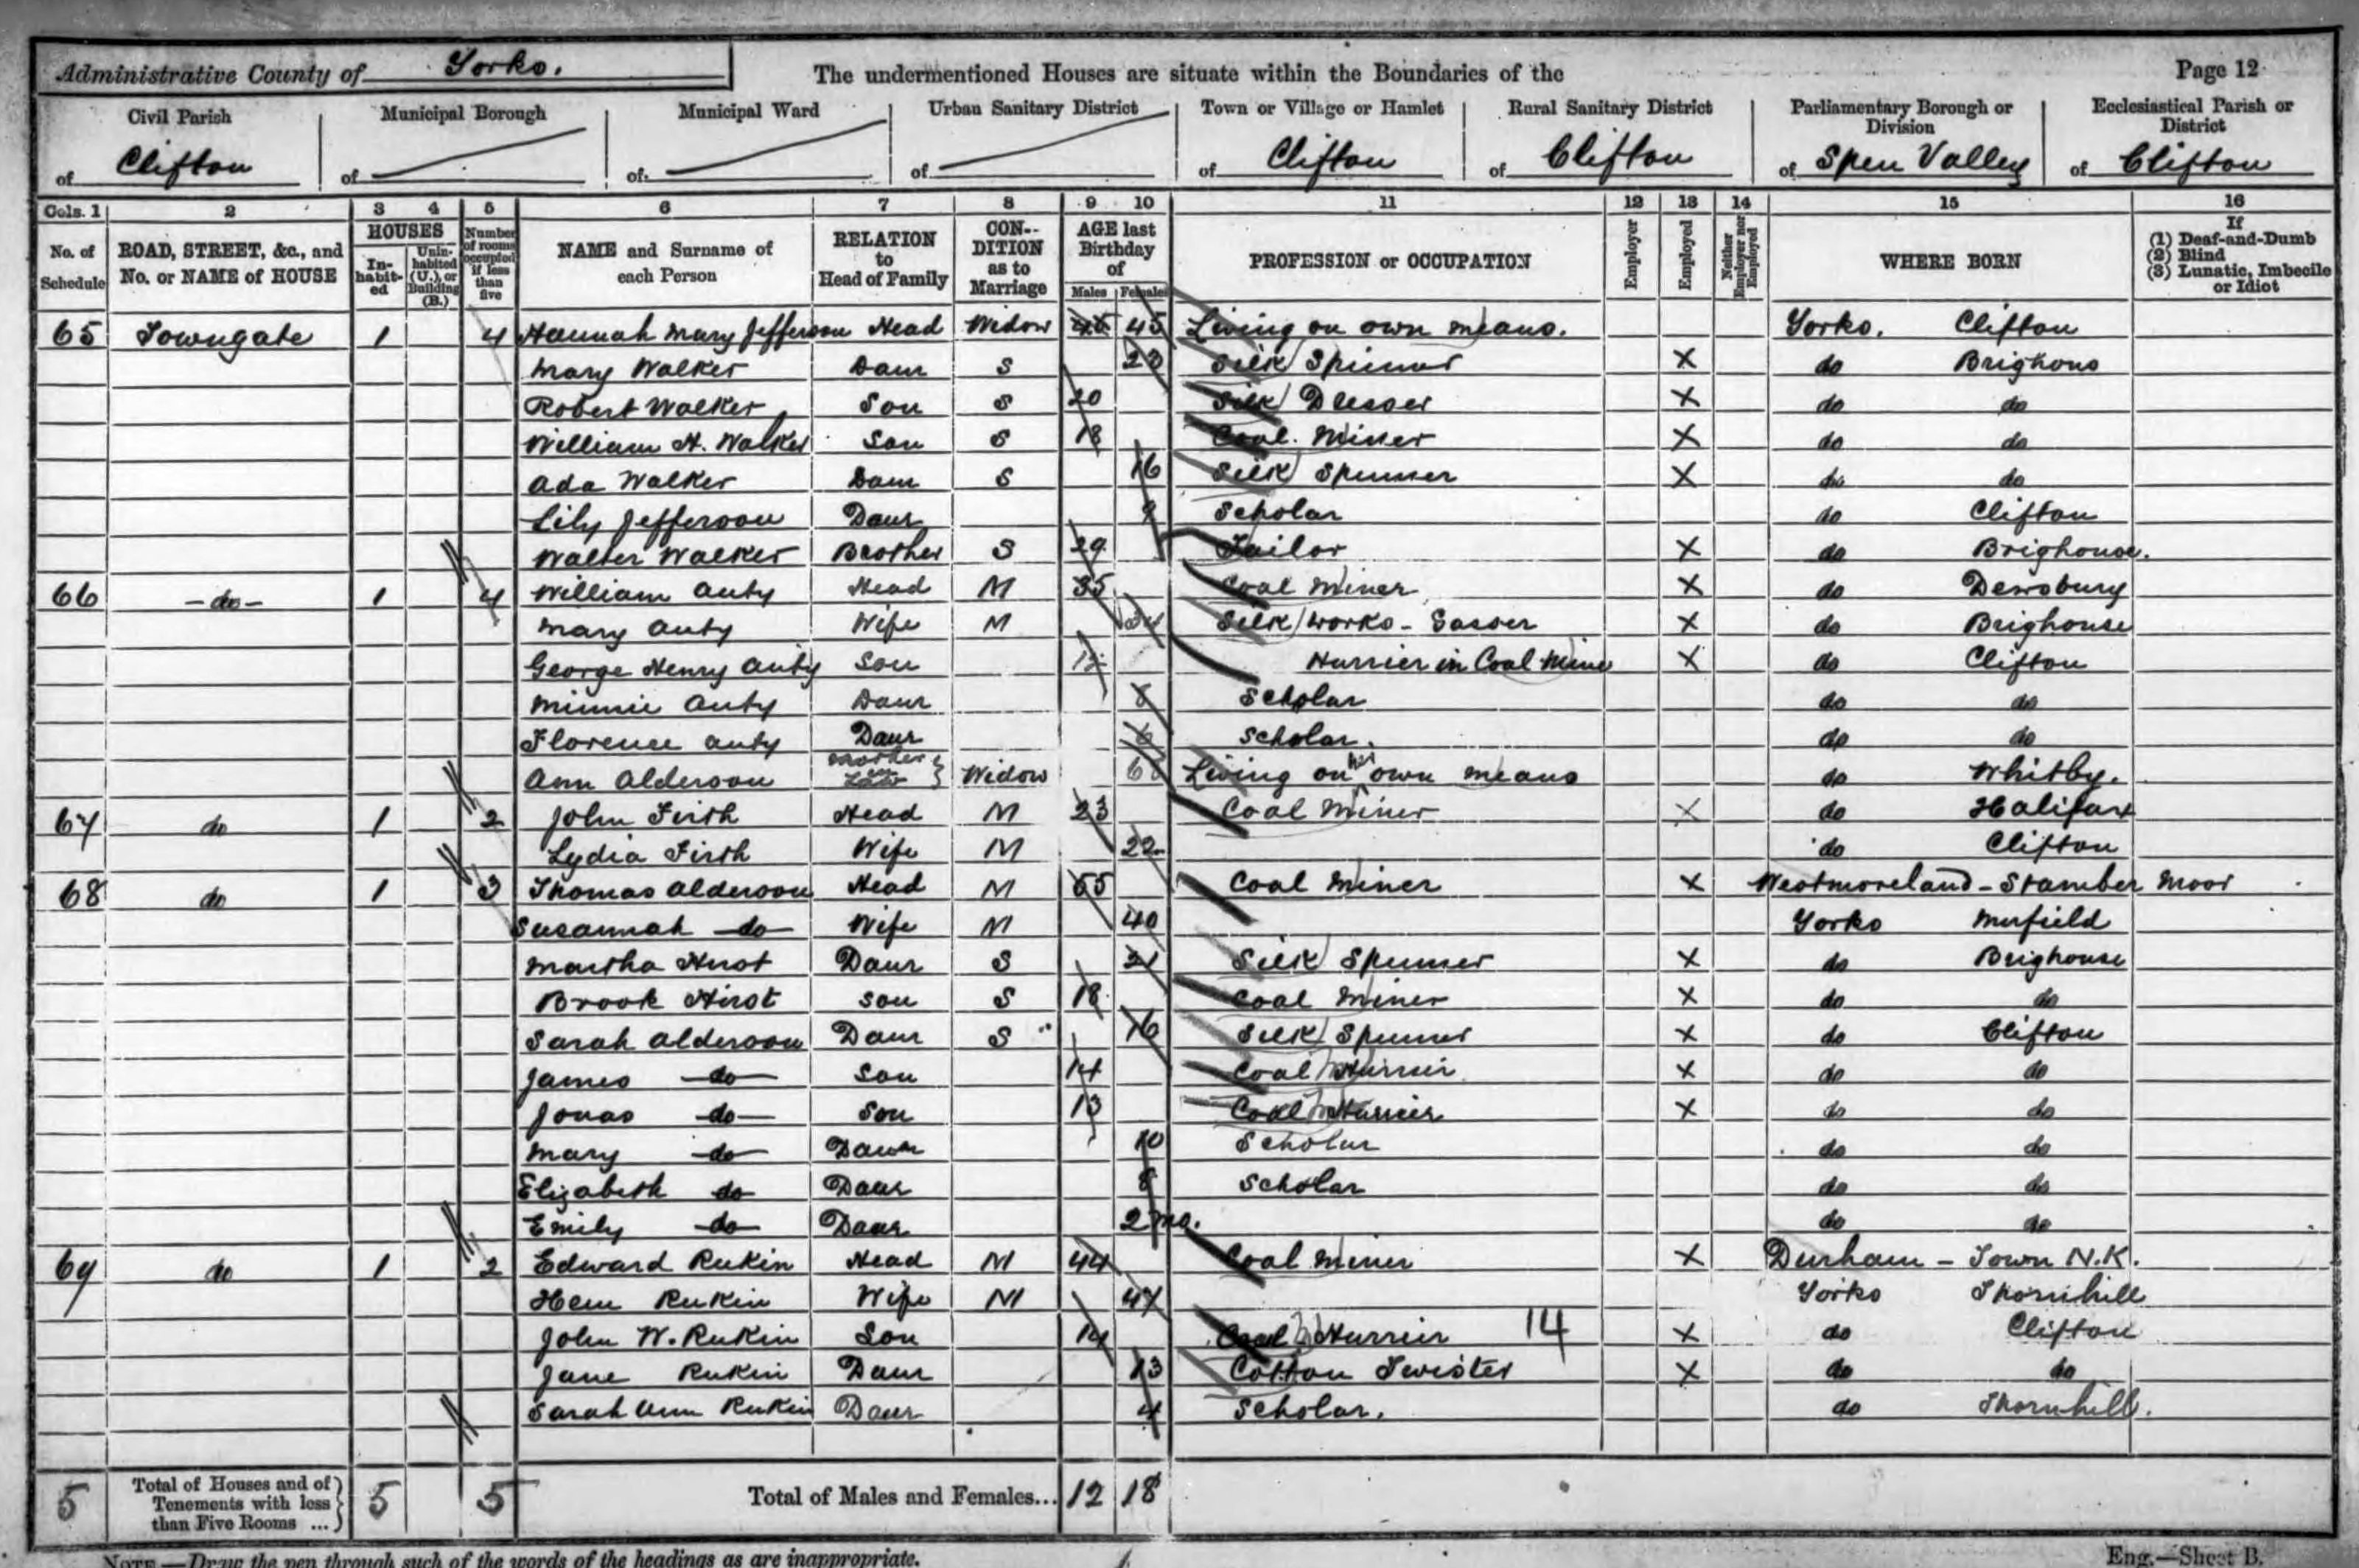 Administrative County of Yorks. The undermentioned Houses are situate within the Boundaries of the Page 12
Civil Parish Municipal Borough Municipal Ward Urban Sanitary District Town or Village or Hamlet Rural Sanitary District Parliamentary Borough or Division Ecclesiastical Parish or District
of Clifton of of of of Clifton of Clifton of Spen Valley of Clifton
Cols. 1 2 3 4 5 6 7 8 9 10 11 12 13 14 15 16
No. of Schedule ROAD, STREET, &c., and No. or NAME of HOUSE HOUSES In-habit-ed Unin-habited (U.), or Building (B.) Number of rooms occupied if less than five NAME and Surname of each Person RELATION to Head of Family CON-DITION as to Marriage AGE last Birthday of Males Females PROFESSION or OCCUPATION Employer Employed Neither Employer nor Employed WHERE BORN If (1) Deaf-and-Dumb (2) Blind (3) Lunatic, Imbecile or Idiot
65 Towngate 1 4 Hannah Mary Jefferson Head Widow 45 45 Living on own means. Yorks. Clifton
Mary Walker Daur S 23 Silk Spinner X do Brighous
Robert Walker Son S 20 Silk Dresser X do do
William H. Walker Son S 18 Coal Miner X do do
Ada Walker Daur S 16 Silk Spinner X do do
Lily Jefferson Daur 9 Scholar do Clifton
Walter Walker Brother S 29 Tailor X do Brighouse.
66 -do- 1 4 William Auty Head M 35 Coal Miner X do Dewsbury
Mary Auty Wife M 34 Silk works - Gasser X do Brighouse
George Henry Auty Son Hurrier in Coal Mine X do Clifton
Minnie Auty Daur 8 Scholar do do
Florence Auty Daur 6 Scholar. do do
Ann Alderson Mother in Law Widow Living on her own means do Whitby.
67 do 1 2 John Firth Head M 23 Coal Miner X do Halifax
Lydia Firth Wife M 22 do Clifton
68 do 1 3 Thomas Alderson Head M 55 Coal Miner X Westmoreland - Stamber Moor
Susannah do Wife M 40 Yorks Mirfield
Martha Hirst Daur S 21 Silk Spinner X do Brighouse
Brook Hirst Son S 18 Coal Miner X do do
Sarah Alderson Daur S 16 Silk Spinner X do Clifton
James do Son 14 Coal Hurrier X do do
Jonas do Son 13 Coal Hurrier X do do
Mary do Daur 10 Scholar do do
Elizabeth do Daur 8 Scholar do do
Emily do Daur 2 mo. do do
69 do 1 2 Edward Rukin Head M 44 Coal Miner X Durham - Town N.K.
Rukin Wife M 47 Yorks Thornhill
John W. Rukin Son 14 Coal Hurrier 14 X do Clifton
Jane Rukin Daur 13 Cotton Twister X do do
Sarah Ann Rukin Daur 4 Scholar. do Thornhill.
5 Total of Houses and of Tenements with less than Five Rooms ... 5 5 Total of Males and Females... 12 18
NOTE.—Draw the pen through such of the words of the headings as are inappropriate. Eng.—Sheet B.